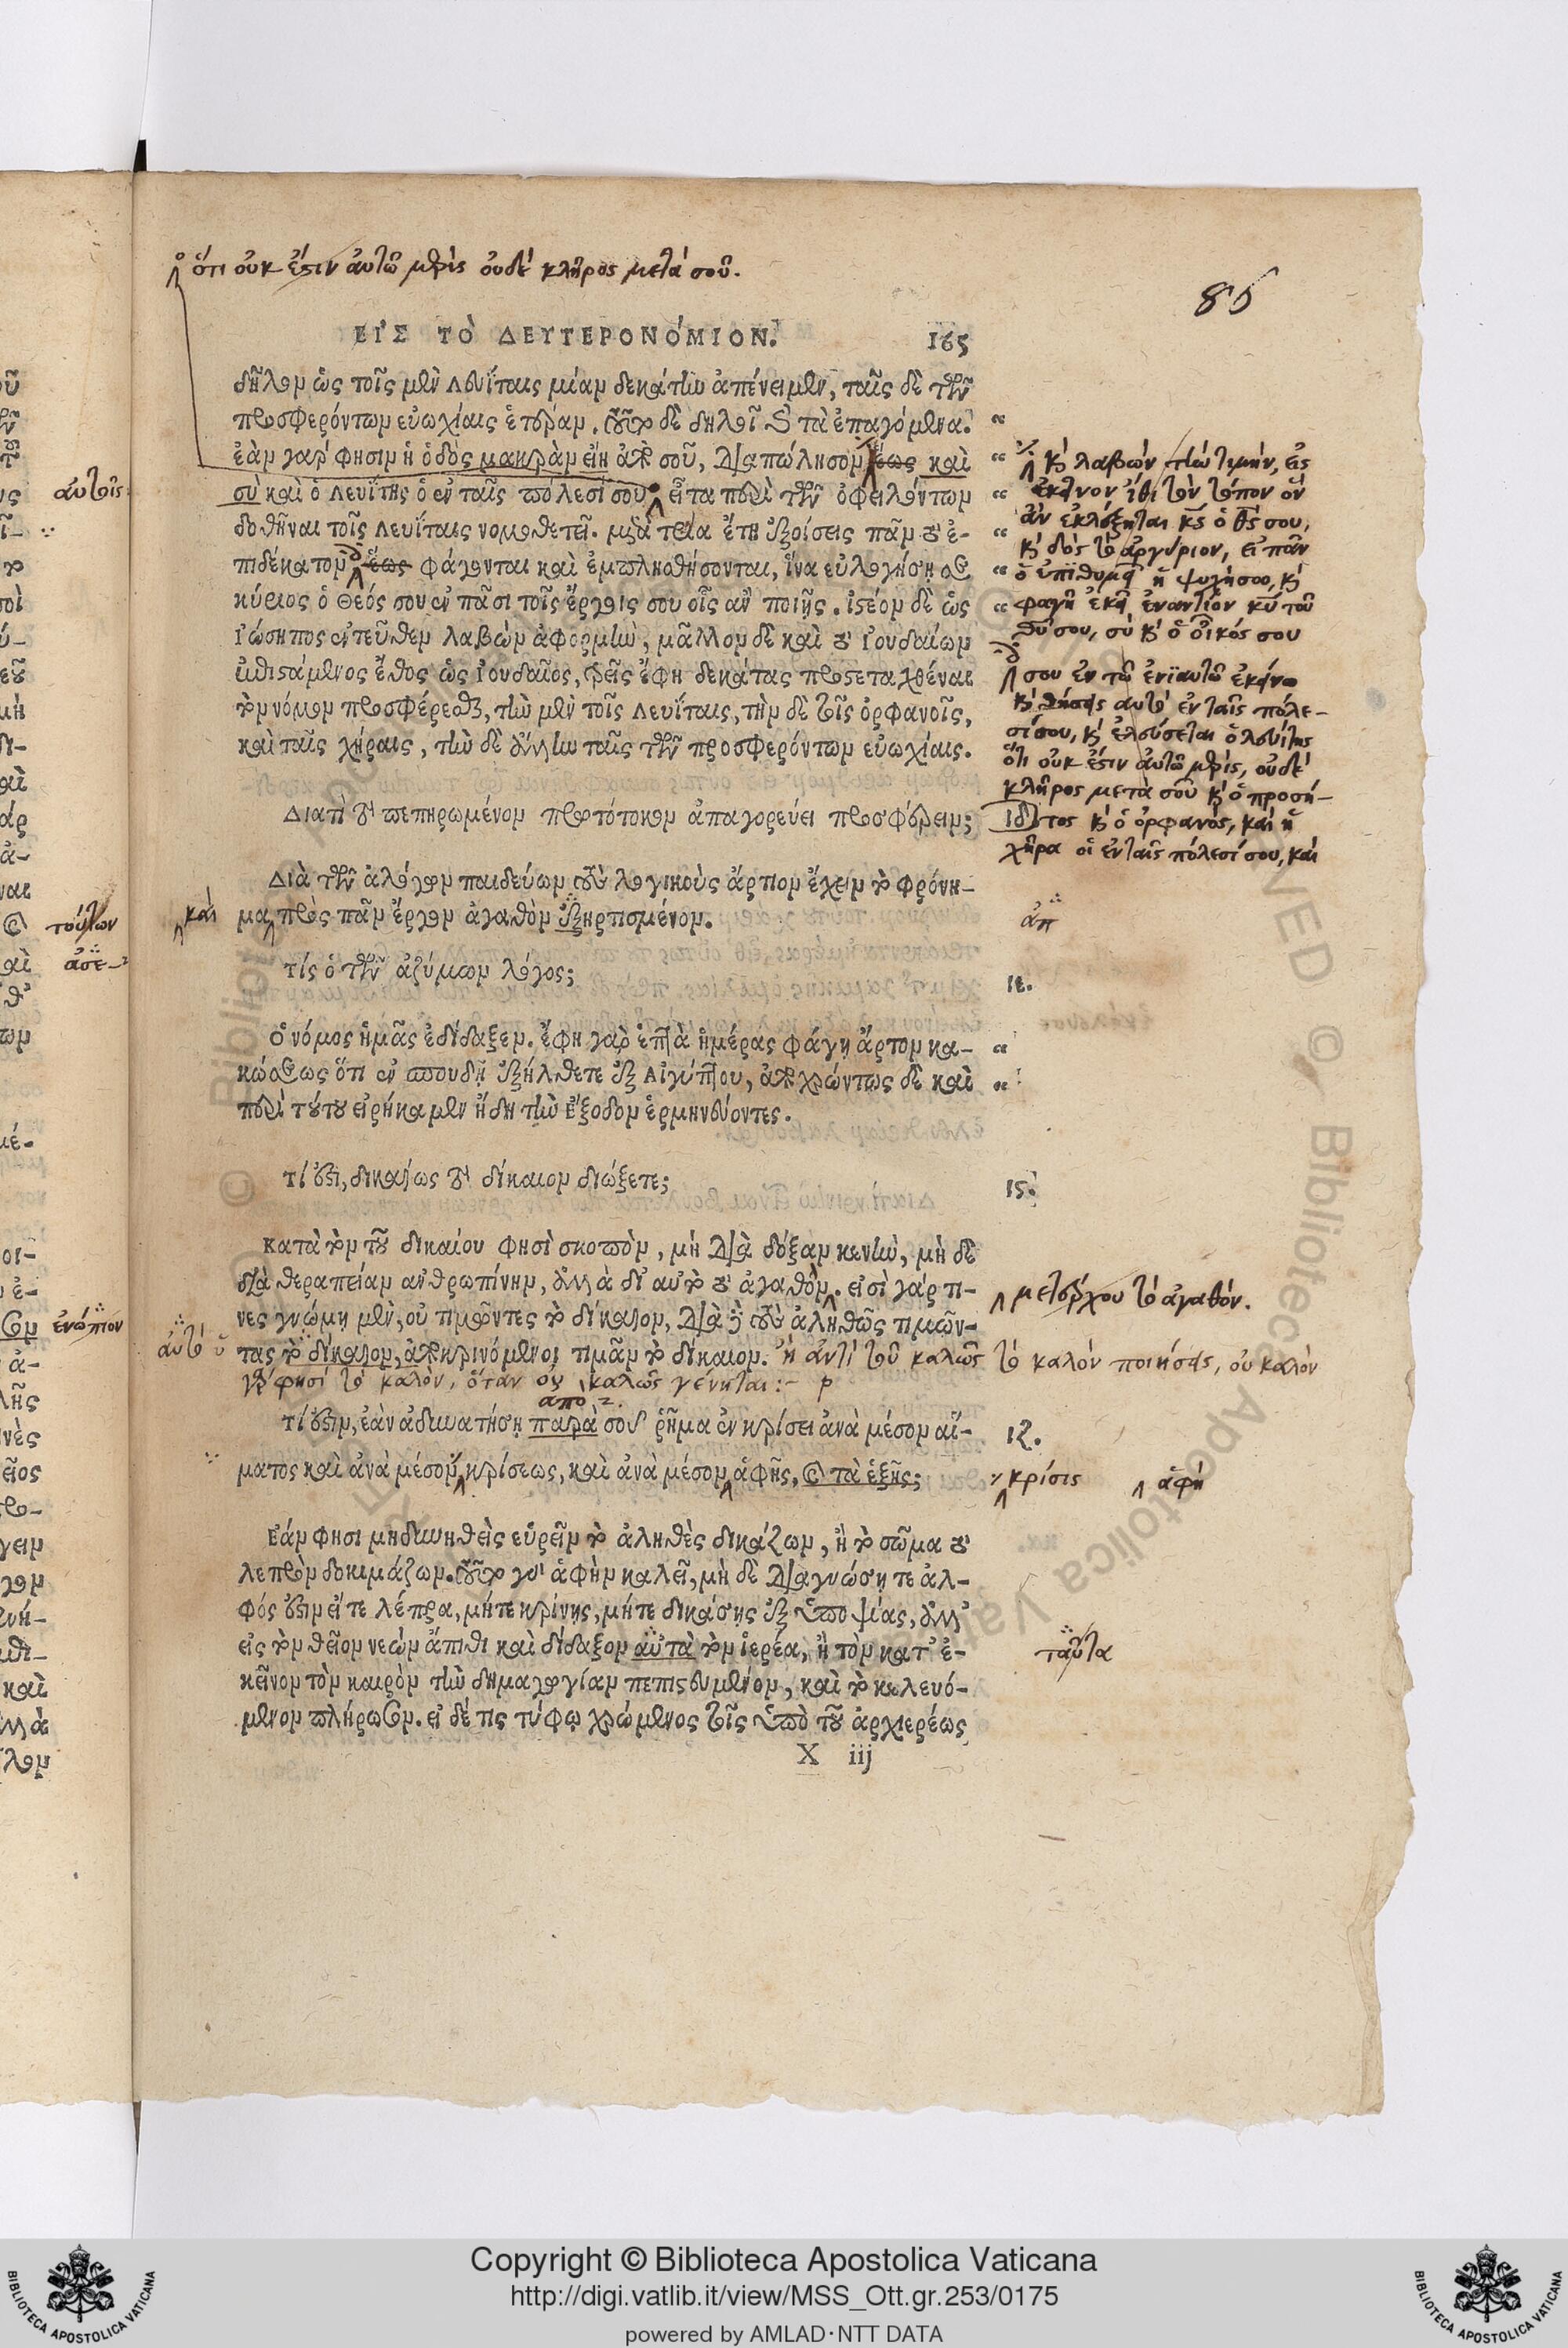 ὅτι οὐκ ἔστιν αὐτῷ μερὶς οὐδὲ κλῆρος μετὰ σοῦ.
85
ΕΙ᾿Σ ΤΟ` ΔΕΥΤΕΡΟΝΟ´ΜΙΟΝ. 165
δῆλον ὡς τοῖς μὲν Λευΐταις μίαν δεκάτην ἀπένειμεν, ταῖς δὲ τῶν
προσφερόντων εὐωχίαις ἑτέραν. τοῦτο δὲ δηλοῖ καὶ τὰ ἐπαγόμενα.
ἐὰν γάρ φησιν ἡ ὁδὸς μακρὰν εἴη ἀπὸ σοῦ, διαπώλησον ἕως καὶ
σὺ καὶ ὁ Λευΐτης ὁ ἐν ταῖς πόλεσί σου. εἶτα περὶ τῶν ὀφειλόντων
δοθῆναι τοῖς Λευΐταις νομοθετεῖ. μετὰ τρία ἔτη ἐξοίσεις πᾶν τὸ ἐ-
πιδέκατον ἕως φάγονται καὶ ἐμπλησθήσονται, ἵνα εὐλογήσῃ σε
κύριος ὁ Θεός σου ἐν πᾶσι τοῖς ἔργοις σου οἷς ἂν ποιῇς. ἰστέον δὲ ὡς
Ἰώσηπος ἐντεῦθεν λαβὼν ἀφορμὴν, μᾶλλον δὲ καὶ τὸ Ἰουδαίων
ἐπιστάμενος ἔθος ὡς Ἰουδαῖος, τρεῖς ἔφη δεκάτας προστεταχθέναι
τὸν νόμον προσφέρεσθαι, τὴν μὲν τοῖς Λευΐταις, τὴν δὲ τοῖς ὀρφανοῖς,
καὶ ταῖς χήραις, τὴν δὲ ἄλλην ταῖς τῶν προσφερόντων εὐωχίαις.
Διατί τὸ πεπηρωμένον πρωτότοκον ἀπαγορεύει προσφέρειν;
Διὰ τῶν ἀλόγων παιδεύων τοὺς λογικοὺς ἄρτιον ἔχειν τὸ φρόνη-
μα πρὸς πᾶν ἔργον ἀγαθὸν ἐξηρτισμένον.
τίς ὁ τῶν ἀζύμων λόγος;
Ὁ νόμος ἡμᾶς ἐδίδαξεν. ἔφη γὰρ ἑπτὰ ἡμέρας φάγῃ ἄρτον κα-
κώσεως ὅτι ἐν σπουδῇ ἐξήλθετε ἐξ Αἰγύπτου, ἀποχρώντως δὲ καὶ
περὶ τούτου εἰρήκαμεν ἤδη τὴν Ἔξοδον ἑρμηνεύοντες.
τί ἐστι, δικαίως τὸ δίκαιον διώξετε;
Κατὰ τὸν τοῦ δικαίου φησὶ σκοπὸν, μὴ διὰ δόξαν κενὴν, μὴ δὲ
διὰ θεραπείαν ἀνθρωπίνην, ἀλλὰ δι᾿ αὐτὸ τὸ ἀγαθὸν. εἰσὶ γάρ τι-
νες γνώμῃ μὲν, οὐ τιμῶντες τὸ δίκαιον, διὰ δὲ τοὺς ἀληθῶς τιμῶν-
τας τὸ δίκαιον, ἀποκρινόμενοι τιμᾶν τὸ δίκαιον. ἢ ἀντὶ τοῦ καλῶς τὸ καλὸν ποιήσεις, οὐ καλὸν
γάρ φησὶ τὸ καλὸν, ὅταν οὐ καλῶς γένηται:
απο
τί ἐστιν, ἐὰν ἀδυνατήσῃ παρὰ σοῦ ῥῆμα ἐν κρίσει ἀνὰ μέσον αἵ-
ματος καὶ ἀνὰ μέσον κρίσεως, καὶ ἀνὰ μέσον ἁφῆς, καὶ τὰ ἑξῆς;
Ἐάν φησι μὴ δυνηθεὶς εὑρεῖν τὸ ἀληθὲς δικάζων, ἢ τὸ σῶμα τὸ
λεπρὸν δοκιμάζων. τοῦτο γὰρ ἁφὴν καλεῖ, μὴ δὲ διαγνώσῃ τε ἀλ-
φός ἐστιν εἴτε λέπρα, μήτε κρίνῃς, μήτε δικάσῃς ἐξ ὑποψίας, ἀλλ᾿
εἰς τὸν θεῖον νεὼν ἄπιθι καὶ δίδαξον αὐτὰ τὸν ἱερέα, ἢ τὸν κατ᾿ ἐ-
κεῖνον τὸν καιρὸν τὴν δημαγωγίαν πεπιστευμένον, καὶ τὸ κελευό-
μενον πλήρωσον. εἰ δέ τις τύφῳ χρώμενος τοῖς ὑπὸ τοῦ ἀρχιερέως
X iij
καὶ λαβὼν τὴν τιμὴν, εἰς
ἐκεῖνον ἴθι τὸν τόπον ὃν
ἂν ἐκλέξηται κς ὁ θς σου,
καὶ δὸς τὸ ἀργύριον, εἰ πᾶν
ὃ ἐπιθυμεῖ ἡ ψυχή σου, καὶ
φαγῇ ἐκεῖ ἐναντίον κυ τοῦ
θυ σου, σὺ καὶ ὁ οἶκός σου
σου ἐν τῷ ἐνιαυτῷ ἐκείνῳ
καὶ θήσεις αὐτὸ ἐν ταῖς πόλε-
σί σου, καὶ ἐλεύσεται ὁ λευίτης
ὅτι οὐκ ἔστιν αὐτῷ μερὶς, οὐδὲ
κλῆρος μετὰ σοῦ καὶ ὁ προσή-
ιδ τος καὶ ὁ ὀρφανὸς, καὶ ἡ
χήρα οἱ ἐν ταῖς πόλεσί σου, καὶ
καὶ
ἀπ
ιε.
ις.
μετέρχου τὸ ἀγαθόν.
αὐτό
ιζ.
κρίσις ἁφή
ταῦτα
αὐτοῖς
τούτων
ἀσε-
ἐνώπιον
Copyright © Biblioteca Apostolica Vaticana
http://digi.vatlib.it/view/MSS_Ott.gr.253/0175
powered by AMLAD·NTT DATA
BIBLIOTECA APOSTOLICA VATICANA
BIBLIOTECA APOSTOLICA VATICANA